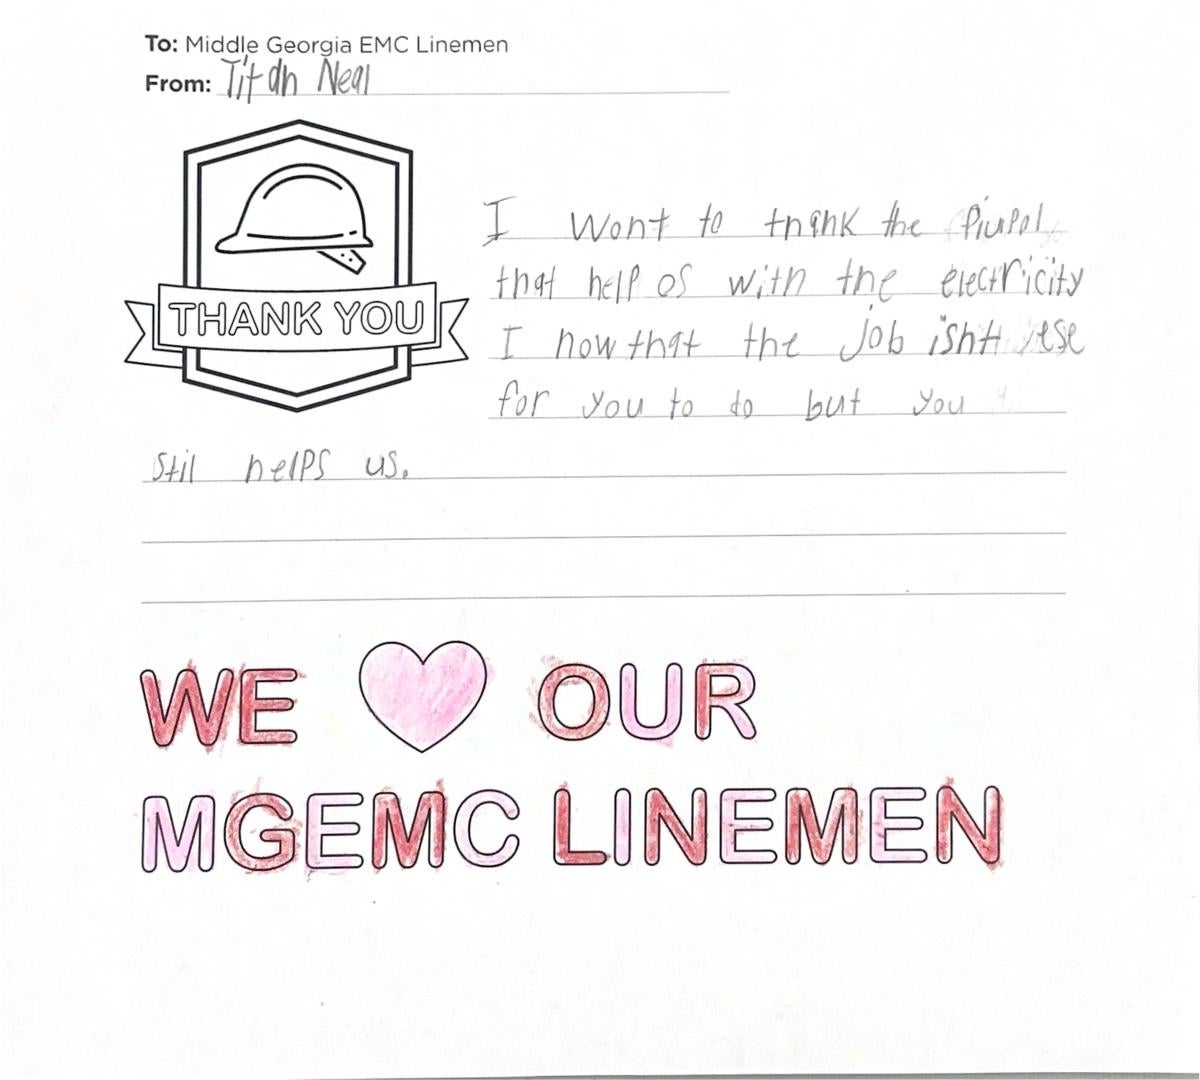 To: Middle Georgia EMC Linemen
From: Titan Neal
THANK YOU
I Wont to thank the Piupol
that help os with the electricity
I now that the job isht yese
for you to do but you
Stil helps us.
WE OUR
MGEMC LINEMEN